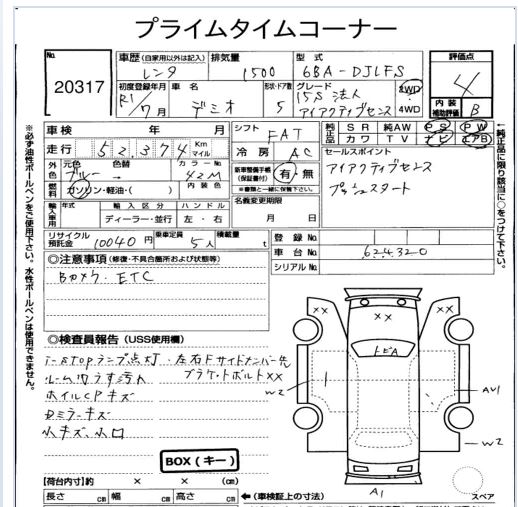 プライムタイムコーナー
No.
20317
車歴 (自家用以外は記入) 排気量 型式 評価点
レンタ 1500 6BA-DJLFS 4
初度登録年月 車名 形状・ドア数 グレード 2WD
R1/7月 デミオ 5 15S 法人 アクティブセンス 4WD
内装補助評価 B
車検 年 月 シフト FAT
純正品 SR 純AW PS PW
カワ TV ナビ エアB
走行 52,374 Km マイル
冷房 AC
セールスポイント
アイアクティブセンス
プッシュスタート
外色 元色 色替 カラーNo. 42M
ブルー
内装色
燃料 ガソリン・軽油・( )
新車整備手帳(保証書付) 有・無
※書類と一緒に保管下さい。
名義変更期限
月 日
輸入車用 年式 輸入区分 ハンドル
ディーラー・並行 左・右
リサイクル預託金 10040円 乗車定員 5人 積載量 t
登録No.
車台No. 624320
シリアルNo.
◎注意事項 (修復・不具合箇所および状態等)
Bカメラ・ETC
◎検査員報告 (USS使用欄)
i-STOPランプ点灯・左右Fサイドメンバー先
ブラケットボルトXX
ルーム内うす汚れ
ホイルCPキズ
Dミラーキズ
小キズ、小凹
BOX (キー)
XX XX
XX
トビA
1
W2
AU1
W2
A1
スペア
【荷台内寸】約 × × (cm)
長さ cm 幅 cm 高さ cm
←(車検証上の寸法)
※必ず油性ボールペンをご使用下さい。水性ボールペンは使用できません。
←純正品に限り該当に○をつけて下さい。